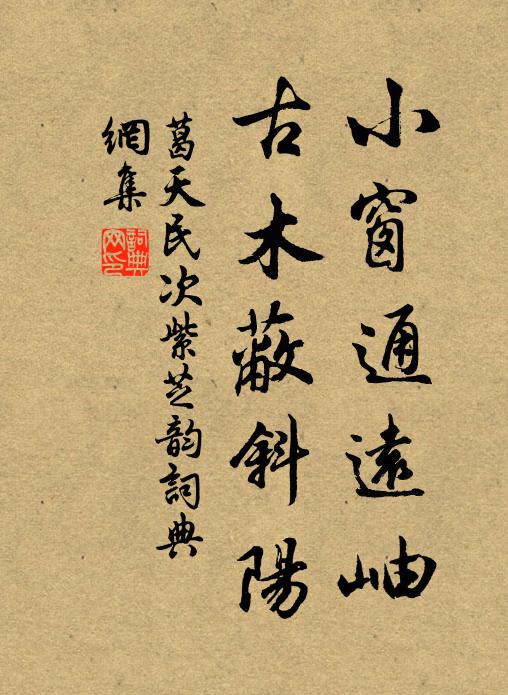 小窗通遠岫
古木蔽斜陽
葛天民次紫芝韵詞典
網集
詞典
网印